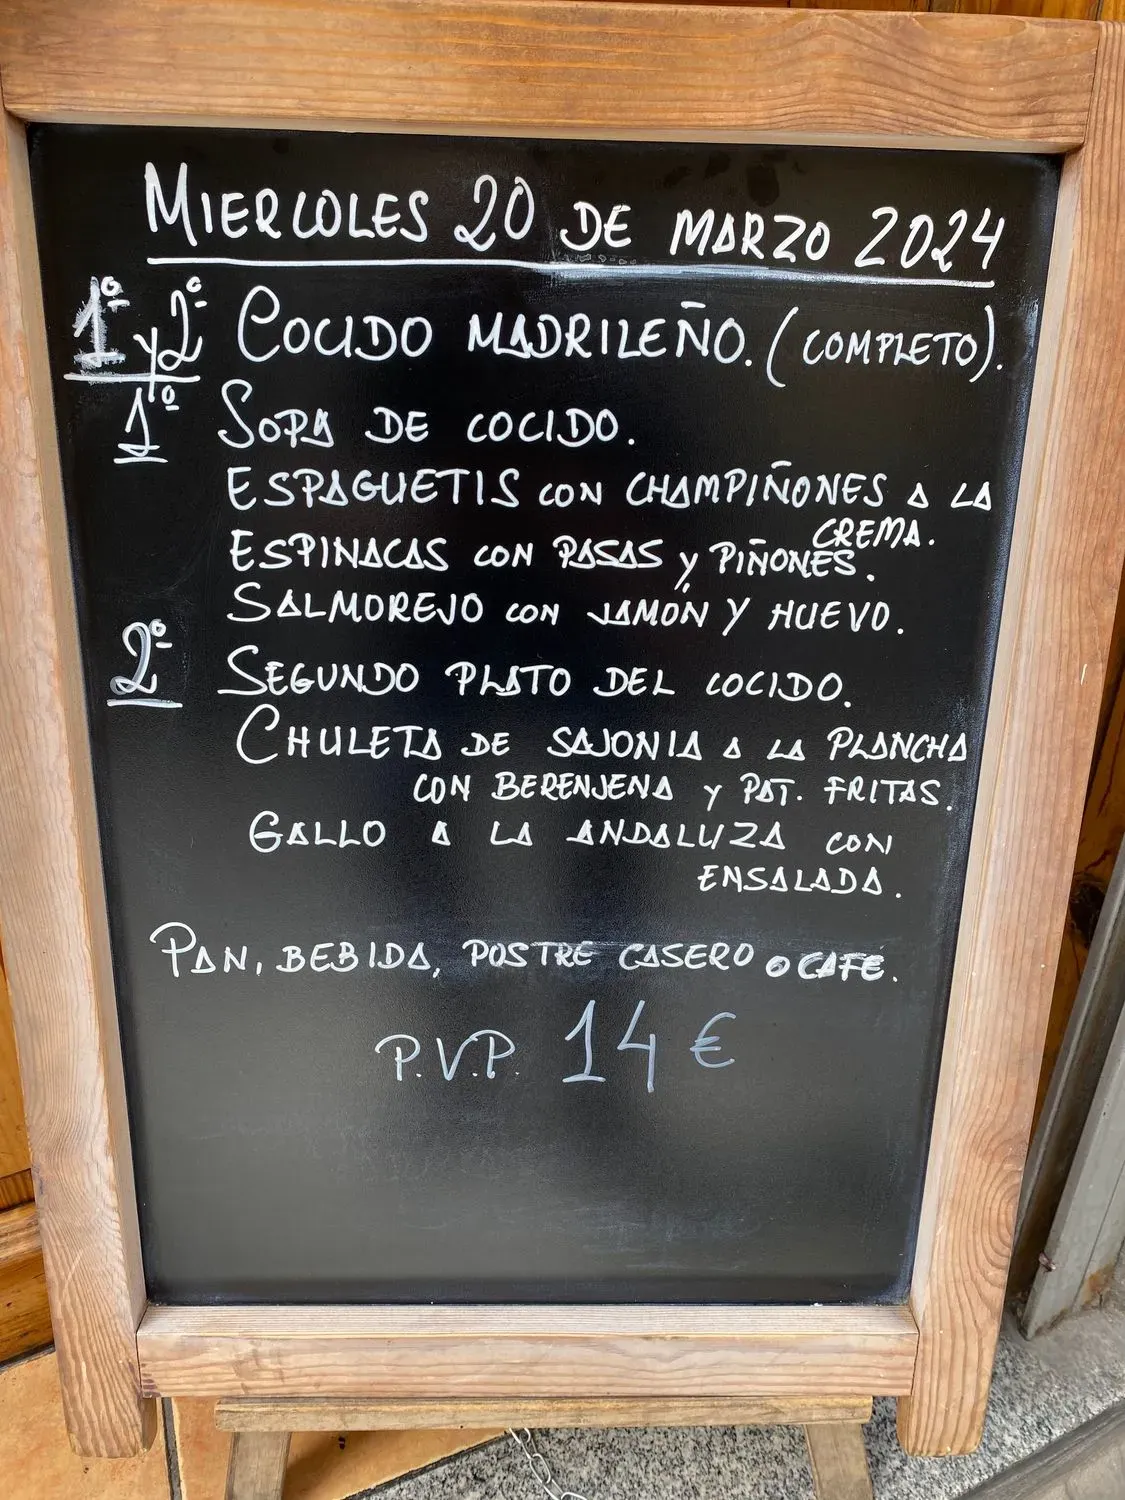 MIERCOLES 20 DE MARZO 2024
1º y 2º COCIDO MADRILEÑO. (COMPLETO).
1º SOPA DE COCIDO.
ESPAGUETIS CON CHAMPIÑONES A LA
CREMA.
ESPINACAS CON PASAS Y PIÑONES.
SALMOREJO CON JAMÓN Y HUEVO.
2º SEGUNDO PLATO DEL COCIDO.
CHULETA DE SAJONIA A LA PLANCHA
CON BERENJENA Y PAT. FRITAS.
GALLO A LA ANDALUZA CON
ENSALADA.
PAN, BEBIDA, POSTRE CASERO O CAFE.
P.V.P. 14 €